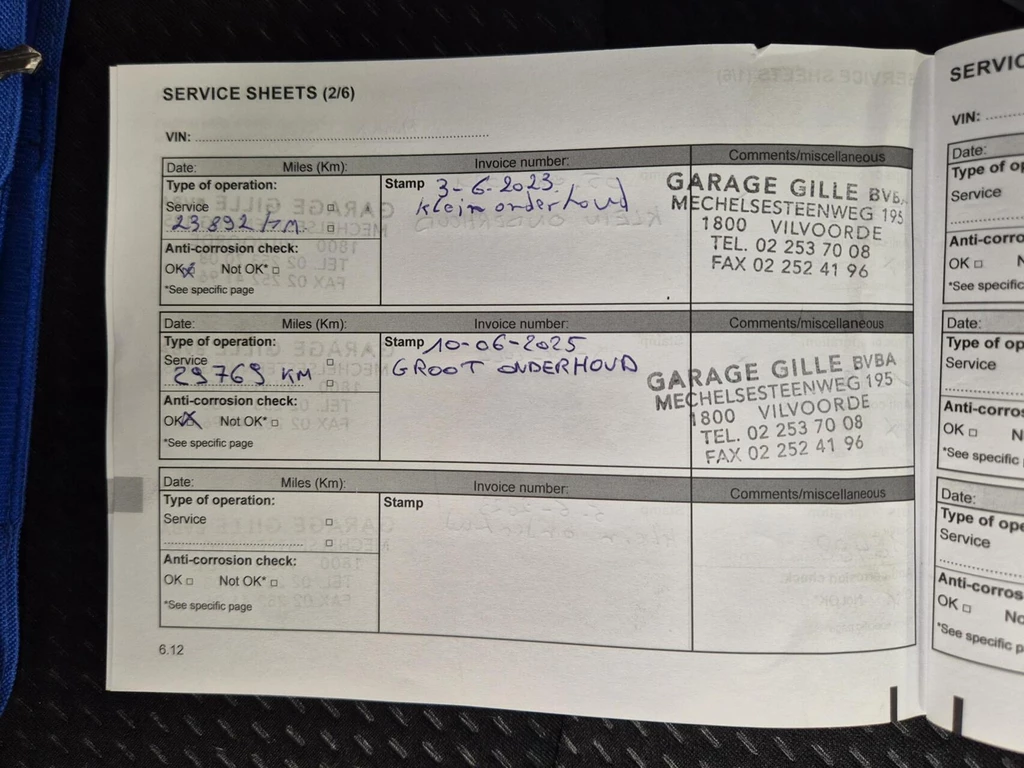 SERVICE SHEETS (2/6)
VIN:
Date: Miles (Km): Invoice number: Comments/miscellaneous
Type of operation:
Service
23892 km
Anti-corrosion check:
OK Not OK*
*See specific page
Stamp 3-6-2023
klein onderhoud
GARAGE GILLE BVBA
MECHELSESTEENWEG 195
1800 VILVOORDE
TEL. 02 253 70 08
FAX 02 252 41 96
Date: Miles (Km): Invoice number: Comments/miscellaneous
Type of operation:
Service
29769 KM
Anti-corrosion check:
OK Not OK*
*See specific page
Stamp 10-06-2025
GROOT ONDERHOUD
GARAGE GILLE BVBA
MECHELSESTEENWEG 195
1800 VILVOORDE
TEL. 02 253 70 08
FAX 02 252 41 96
Date: Miles (Km): Invoice number: Comments/miscellaneous
Type of operation:
Service
Anti-corrosion check:
OK Not OK*
*See specific page
Stamp
6.12
VIN:
Date:
Type of
Service
OK
*See
Date:
Type of
Service
OK
*See specific
Date:
Type of
Service
OK
*See specific